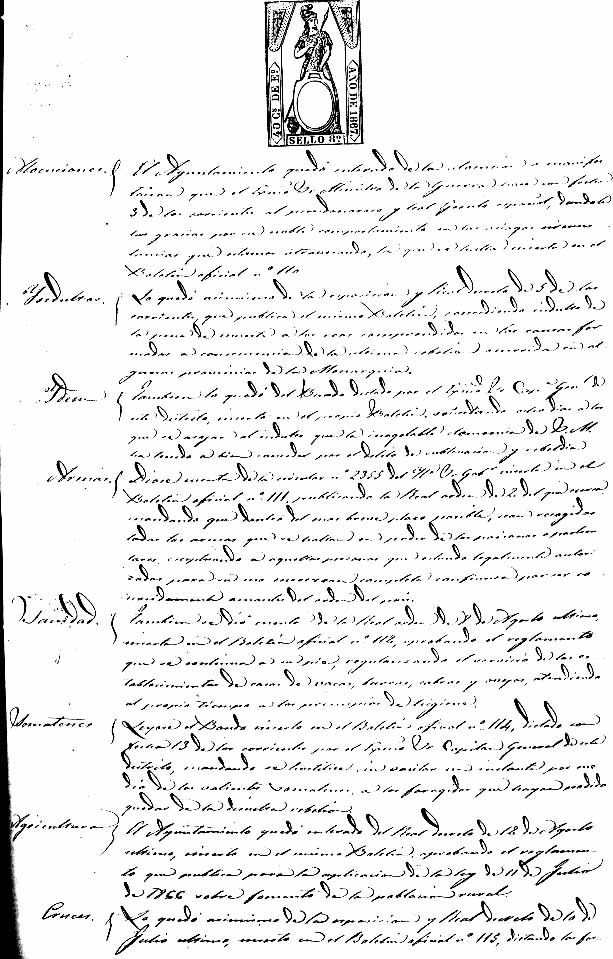 40 Cs DE Eo
AÑO DE 1867.
SELLO 8º
Alocuciones. El Ayuntamiento quedó enterado de la alocucion
que el Excmo Sr Ministro de la Guerra con fecha
3 de los corrientes al y Real Ejército español, dandole
las gracias por su noble comportamiento en las
que se halla inserta en el
Boletin oficial nº 110
Indultos. Lo quedó asimismo de la esposicion y Real decreto de 5 de los
corrientes, que publica el mismo Boletin, concediendo indulto de
la pena de muerte a los reos comprendidos en las causas for
madas a consecuencia de la ultima rebelion ocurrida en al
gunas provincias de la Monarquia.
Idem Tambien lo quedó del Bando dictado por el Excmo Sr Capn Genl de
este distrito, inserto en el propio Boletin, dias a los
que se acojan al indulto que la inagotable clemencia de S. M.
ha tenido a bien conceder por el delito de y rebeldia
Armas. Diose cuenta de la circular nº 2355 del Sr Gobr inserta en el
Boletin oficial nº 111, publicando la Real orden de 2 del
mandando que dentro del mas breve plazo posible, sean recogidas
todas las armas que se hallen en poder de los paisanos
a aquellas personas que estando legalmente auto
rizadas para su uso merezcan completa confianza por ser co
nocidamente amantes del orden del pais.
Sanidad. Tambien se dió cuenta de la Real orden de 8 de Agosto ultimo,
inserta en el Boletin oficial nº 112, aprobando el reglamento
que se continua a su pie, regularizando el servicio de los es
tablecimientos de casas de vacas, burras, cabras y ovejas, atendiendo
al propio tiempo a los preceptos de higiene.
Somatenes Leyose el Bando inserto en el Boletin oficial nº 114, dictado con
fecha 13 de los corrientes por el Excmo Sr Capitan General de este
distrito, mandando se hostilice sin un instante por me
dio de los valientes somatenes, a los forajidos que hayan podido
quedar de la disuelta rebelion.
Agricultura El Ayuntamiento quedó enterado del Real decreto de 12 de Agosto
ultimo, inserto en el mismo Boletin, aprobando el reglamen
to que publica para la aplicacion de la ley de 11 de Julio
de 1866 sobre fomento de la poblacion rural.
Cruces. Lo quedó asimismo de la esposicion y Real decreto de 10 de
Julio ultimo, inserto en el Boletin oficial nº 115, dictando las for